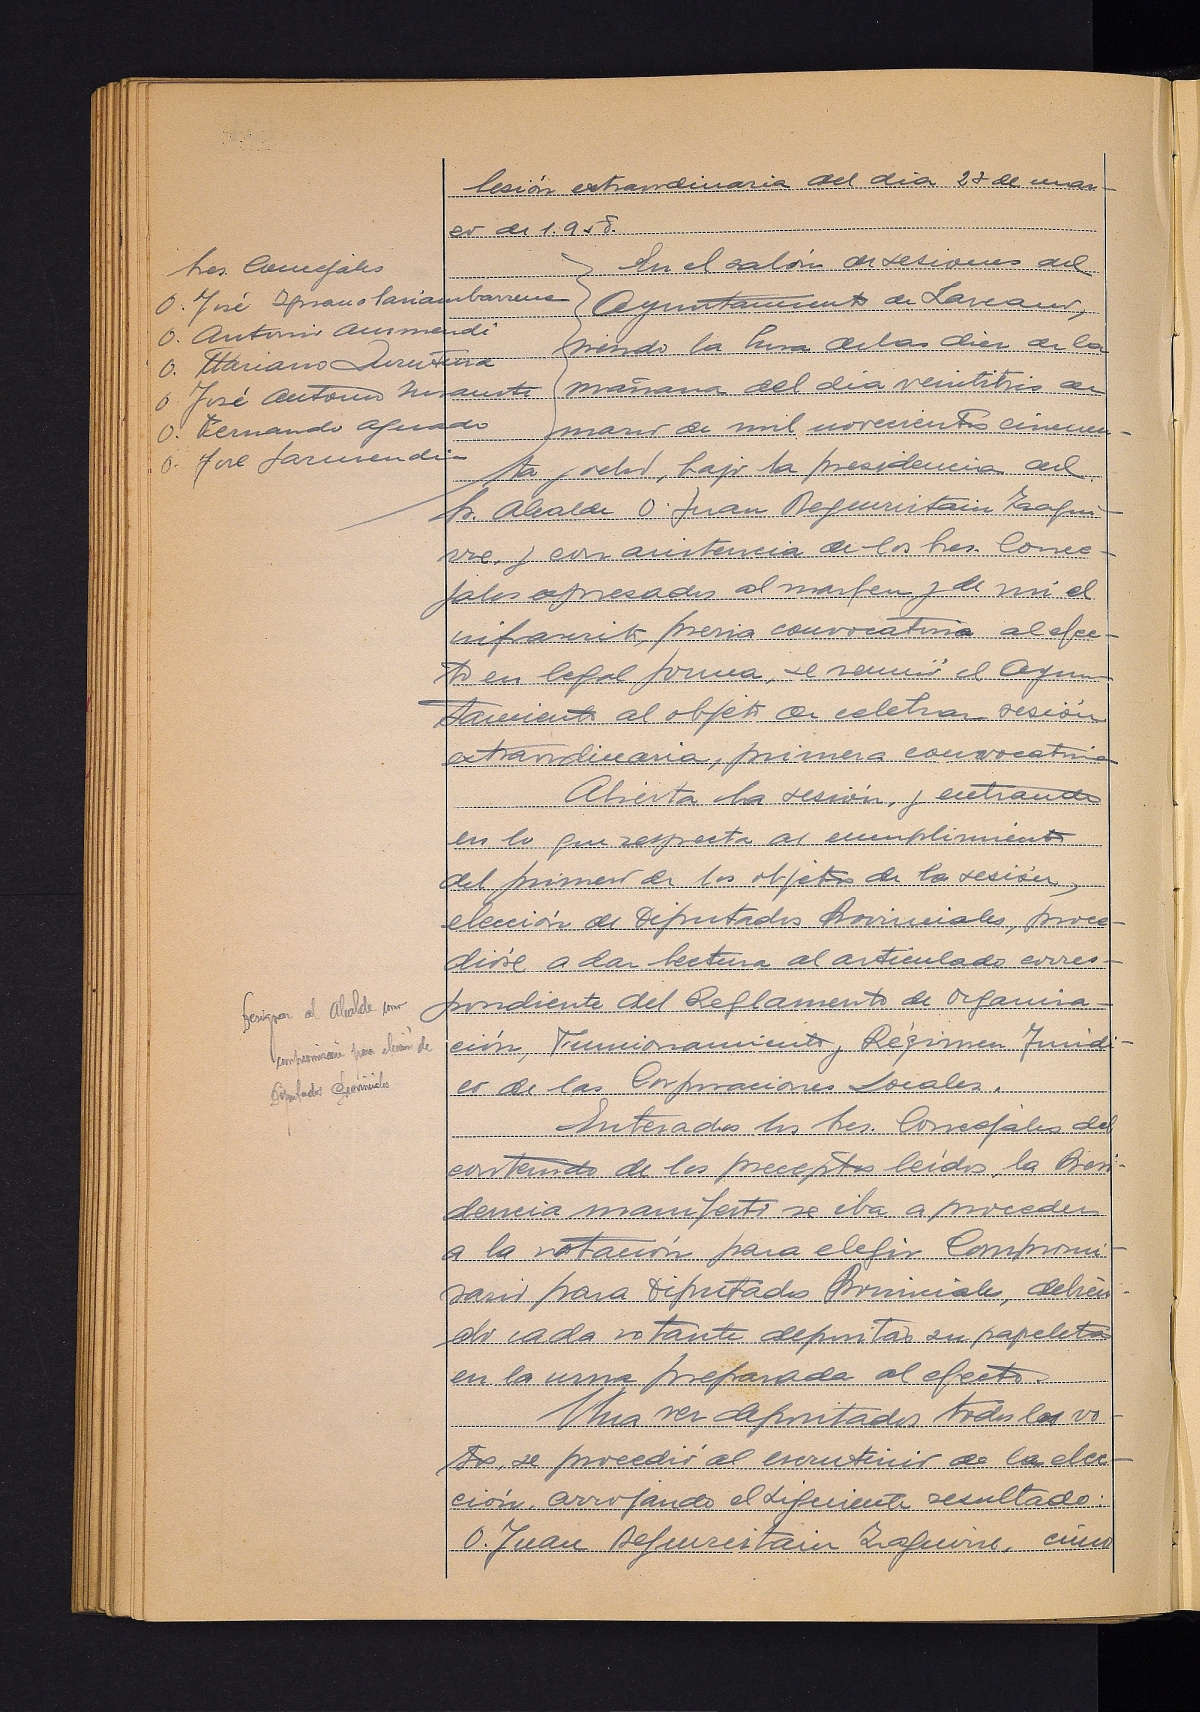 Sesión extraordinaria del día 23 de mar-
zo de 1.958.
Sres. Concejales
D. José Ignacio
D. Antonio Aurmendi
D. Mariano
D. José Antonio
D. Fernando Aguado
D. José
En el salón de sesiones del
Ayuntamiento de Lazcano,
siendo la hora de las diez de la
mañana del día veintitris de
marzo de mil novecientos cincuen-
ta y ocho, bajo la presidencia del
Sr. Alcalde D. Juan Beguiristain Izagui-
rre, y con asistencia de los Sres. Conce-
jales expresados al margen y de mi el
infrascrito, previa convocatoria al efec-
to en legal forma, se reunió el Ayun-
tamiento al objeto de celebrar sesión
extraordinaria, primera convocatoria
Abierta la sesión, y entrando
en lo que respecta al cumplimiento
del primero de los objetos de la sesión,
elección de Diputados Provinciales, proce-
dióse a dar lectura al articulado corres-
pondiente del Reglamento de Organiza-
ción, Funcionamiento y Régimen Jurídi-
co de las Corporaciones Locales.
Designar al Alcalde como
compromisario para elección de
Diputados Provinciales
Enterados los Sres. Concejales del
contenido de los preceptos leídos, la Presi-
dencia manifestó se iba a proceder
a la votación para elegir Compromi-
sario para Diputados Provinciales, debien-
do cada votante depositar su papeleta
en la urna preparada al efecto.
Una vez depositados todos los vo-
tos, se procedió al escrutinio de la elec-
ción, arrojando el siguiente resultado:
D. Juan Beguiristain Izaguirre, cinco